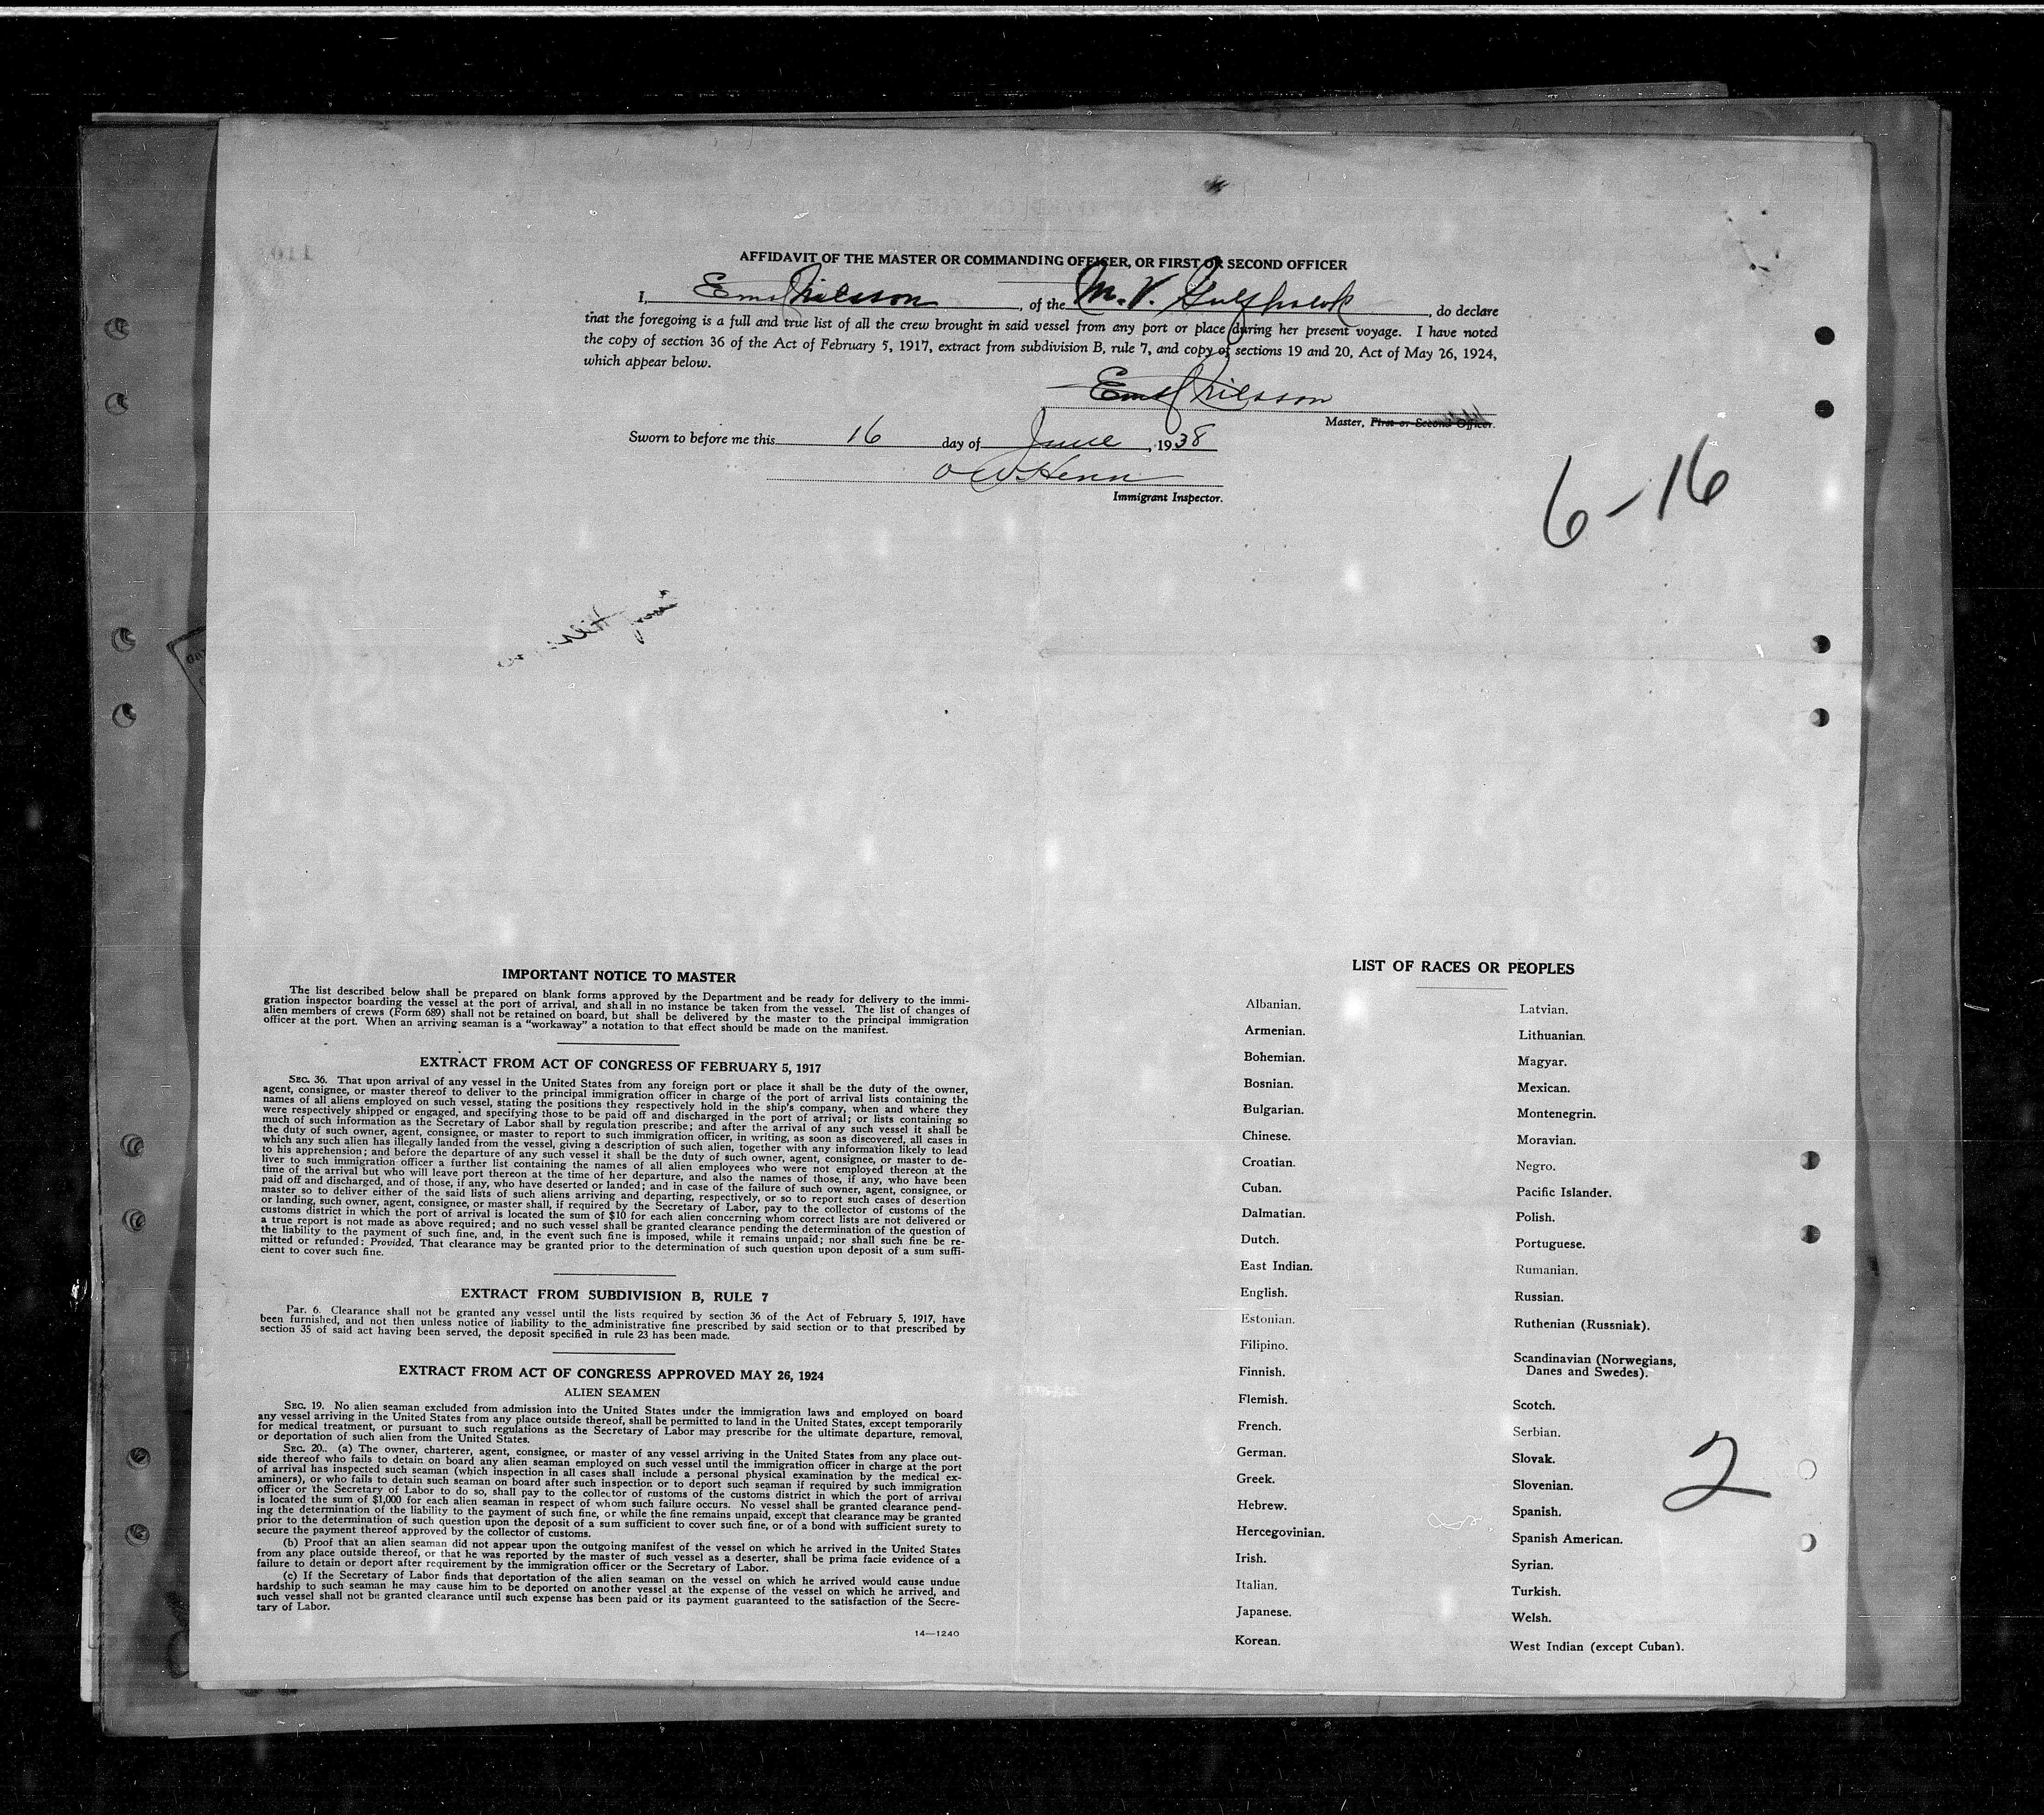 AFFIDAVIT OF THE MASTER OR COMMANDING OFFICER, OR FIRST OR SECOND OFFICER
I, Nilsson, of the M. V. Gulfhawk, do declare
that the foregoing is a full and true list of all the crew brought in said vessel from any port or place during her present voyage. I have noted
the copy of section 36 of the Act of February 5, 1917, extract from subdivision B, rule 7, and copy of sections 19 and 20, Act of May 26, 1924,
which appear below.
Nilsson
Master, First or Second Officer.
Sworn to before me this 16 day of June, 1938
O W Henn
Immigrant Inspector.
6-16
IMPORTANT NOTICE TO MASTER
The list described below shall be prepared on blank forms approved by the Department and be ready for delivery to the immi-
gration inspector boarding the vessel at the port of arrival, and shall in no instance be taken from the vessel. The list of changes of
alien members of crews (Form 689) shall not be retained on board, but shall be delivered by the master to the principal immigration
officer at the port. When an arriving seaman is a "workaway" a notation to that effect should be made on the manifest.
EXTRACT FROM ACT OF CONGRESS OF FEBRUARY 5, 1917
SEC. 36. That upon arrival of any vessel in the United States from any foreign port or place it shall be the duty of the owner,
agent, consignee, or master thereof to deliver to the principal immigration officer in charge of the port of arrival lists containing the
names of all aliens employed on such vessel, stating the positions they respectively hold in the ship's company, when and where they
were respectively shipped or engaged, and specifying those to be paid off and discharged in the port of arrival; or lists containing so
much of such information as the Secretary of Labor shall by regulation prescribe; and after the arrival of any such vessel it shall be
the duty of such owner, agent, consignee, or master to report to such immigration officer, in writing, as soon as discovered, all cases in
which any such alien has illegally landed from the vessel, giving a description of such alien, together with any information likely to lead
to his apprehension; and before the departure of any such vessel it shall be the duty of such owner, agent, consignee, or master to de-
liver to such immigration officer a further list containing the names of all alien employees who were not employed thereon at the
time of the arrival but who will leave port thereon at the time of her departure, and also the names of those, if any, who have been
paid off and discharged, and of those, if any, who have deserted or landed; and in case of the failure of such owner, agent, consignee, or
master so to deliver either of the said lists of such aliens arriving and departing, respectively, or so to report such cases of desertion
or landing, such owner, agent, consignee, or master shall, if required by the Secretary of Labor, pay to the collector of customs of the
customs district in which the port of arrival is located the sum of $10 for each alien concerning whom correct lists are not delivered or
a true report is not made as above required; and no such vessel shall be granted clearance pending the determination of the question of
the liability to the payment of such fine, and, in the event such fine is imposed, while it remains unpaid; nor shall such fine be re-
mitted or refunded: Provided, That clearance may be granted prior to the determination of such question upon deposit of a sum suffi-
cient to cover such fine.
EXTRACT FROM SUBDIVISION B, RULE 7
Par. 6. Clearance shall not be granted any vessel until the lists required by section 36 of the Act of February 5, 1917, have
been furnished, and not then unless notice of liability to the administrative fine prescribed by said section or to that prescribed by
section 35 of said act having been served, the deposit specified in rule 23 has been made.
EXTRACT FROM ACT OF CONGRESS APPROVED MAY 26, 1924
ALIEN SEAMEN
SEC. 19. No alien seaman excluded from admission into the United States under the immigration laws and employed on board
any vessel arriving in the United States from any place outside thereof, shall be permitted to land in the United States, except temporarily
for medical treatment, or pursuant to such regulations as the Secretary of Labor may prescribe for the ultimate departure, removal,
or deportation of such alien from the United States.
SEC. 20. (a) The owner, charterer, agent, consignee, or master of any vessel arriving in the United States from any place out-
side thereof who fails to detain on board any alien seaman employed on such vessel until the immigration officer in charge at the port
of arrival has inspected such seaman (which inspection in all cases shall include a personal physical examination by the medical ex-
aminers), or who fails to detain such seaman on board after such inspection or to deport such seaman if required by such immigration
officer or the Secretary of Labor to do so, shall pay to the collector of customs of the customs district in which the port of arrival
is located the sum of $1,000 for each alien seaman in respect of whom such failure occurs. No vessel shall be granted clearance pend-
ing the determination of the liability to the payment of such fine, or while the fine remains unpaid, except that clearance may be granted
prior to the determination of such question upon the deposit of a sum sufficient to cover such fine, or of a bond with sufficient surety to
secure the payment thereof approved by the collector of customs.
(b) Proof that an alien seaman did not appear upon the outgoing manifest of the vessel on which he arrived in the United States
from any place outside thereof, or that he was reported by the master of such vessel as a deserter, shall be prima facie evidence of a
failure to detain or deport after requirement by the immigration officer or the Secretary of Labor.
(c) If the Secretary of Labor finds that deportation of the alien seaman on the vessel on which he arrived would cause undue
hardship to such seaman he may cause him to be deported on another vessel at the expense of the vessel on which he arrived, and
such vessel shall not be granted clearance until such expense has been paid or its payment guaranteed to the satisfaction of the Secre-
tary of Labor.
14—1240
LIST OF RACES OR PEOPLES
Albanian.
Armenian.
Bohemian.
Bosnian.
Bulgarian.
Chinese.
Croatian.
Cuban.
Dalmatian.
Dutch.
East Indian.
English.
Estonian.
Filipino.
Finnish.
Flemish.
French.
German.
Greek.
Hebrew.
Hercegovinian.
Irish.
Italian.
Japanese.
Korean.
Latvian.
Lithuanian.
Magyar.
Mexican.
Montenegrin.
Moravian.
Negro.
Pacific Islander.
Polish.
Portuguese.
Rumanian.
Russian.
Ruthenian (Russniak).
Scandinavian (Norwegians,
Danes and Swedes).
Scotch.
Serbian.
Slovak.
Slovenian.
Spanish.
Spanish American.
Syrian.
Turkish.
Welsh.
West Indian (except Cuban).
2